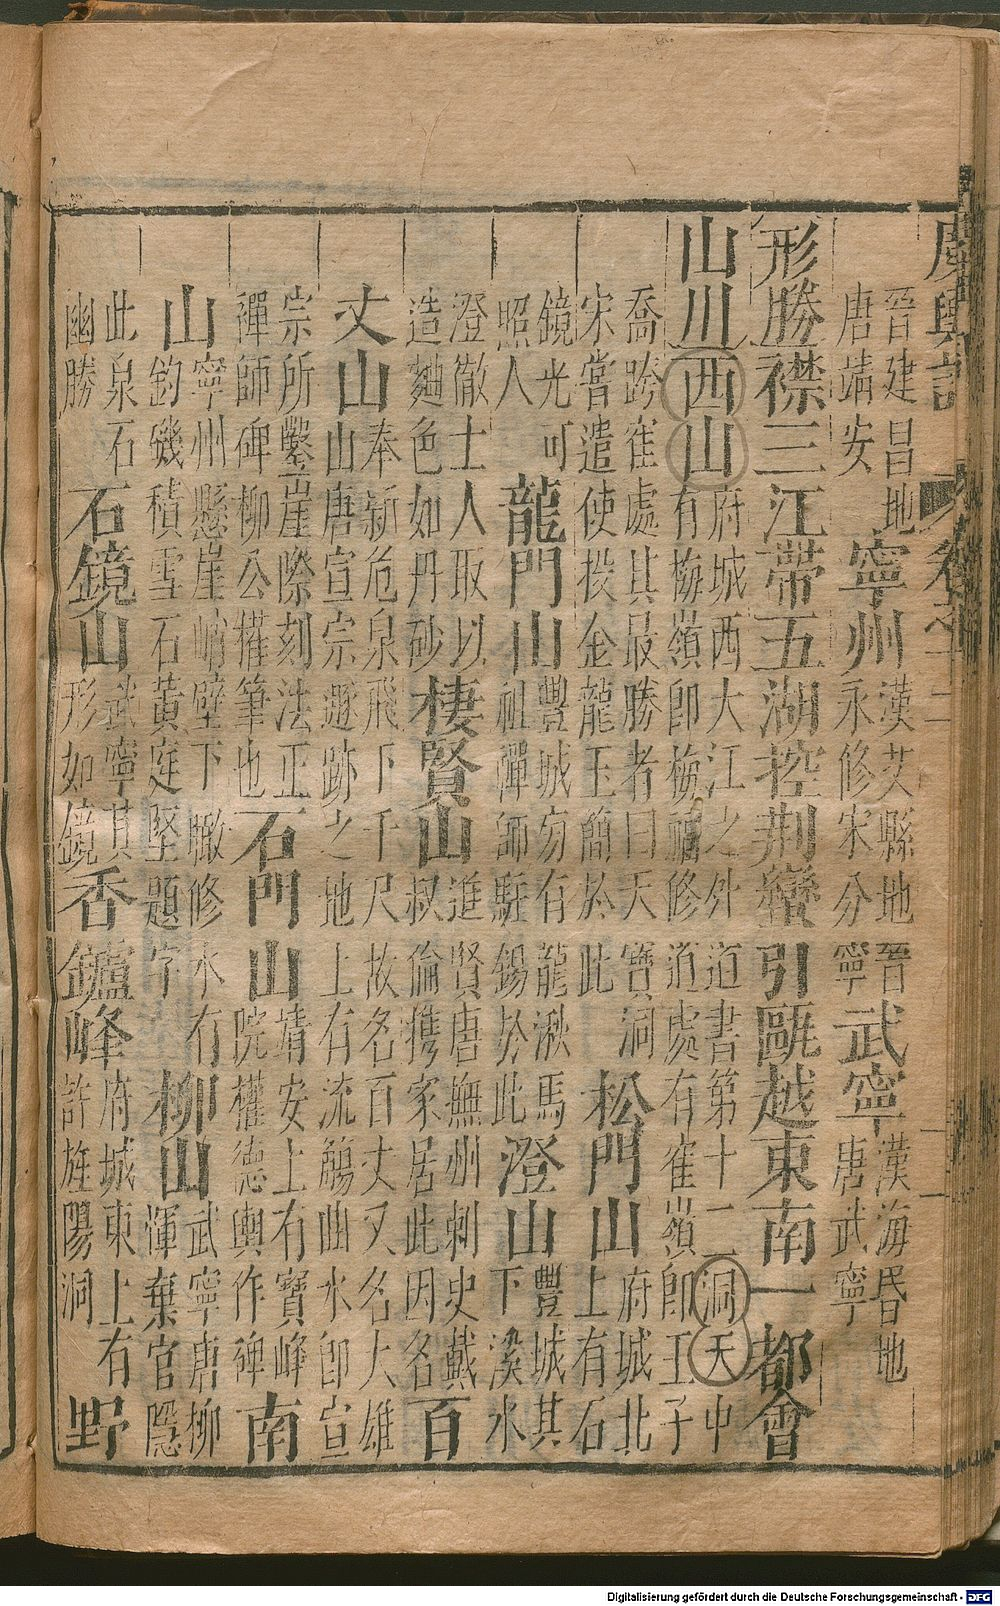 廣輿記 卷之十二
晉建昌地唐靖安寧州漢艾縣地晉永修宋分寧武寧漢海昬地唐武寧
形勝襟三江帶五湖控荆蠻引甌越東南一都會
山川西山府城西大江之外道書第十二洞天中有梅嶺即梅福修道處有崔嶺即王子
喬跨崔處其最勝者曰天寶洞宋嘗遣使投金龍玉簡於此松門山府城北上有石
鏡光可照人龍門山豐城旁有龍湫馬祖禪師駐錫於此澄山豐城其下溪水
澄徹土人取以造麯色如丹砂棲賢山進賢唐撫州刺史戴叔倫携家居此因名百
丈山奉新危泉飛下千尺故名百丈又名大雄山唐宣宗遯跡之地上有流觴曲水即宣
宗所鑿崖際刻法正禪師碑柳公權筆也石門山靖安上有寶峰院權德輿作碑南
山寧州懸崖峭壁下瞰修水有釣磯積雪石黃庭堅題字柳山武寧唐柳渾棄官隱
此泉石幽勝石鏡山武寧其形如鏡香鑪峰府城東上有許旌陽洞野
Digitalisierung gefördert durch die Deutsche Forschungsgemeinschaft - DFG